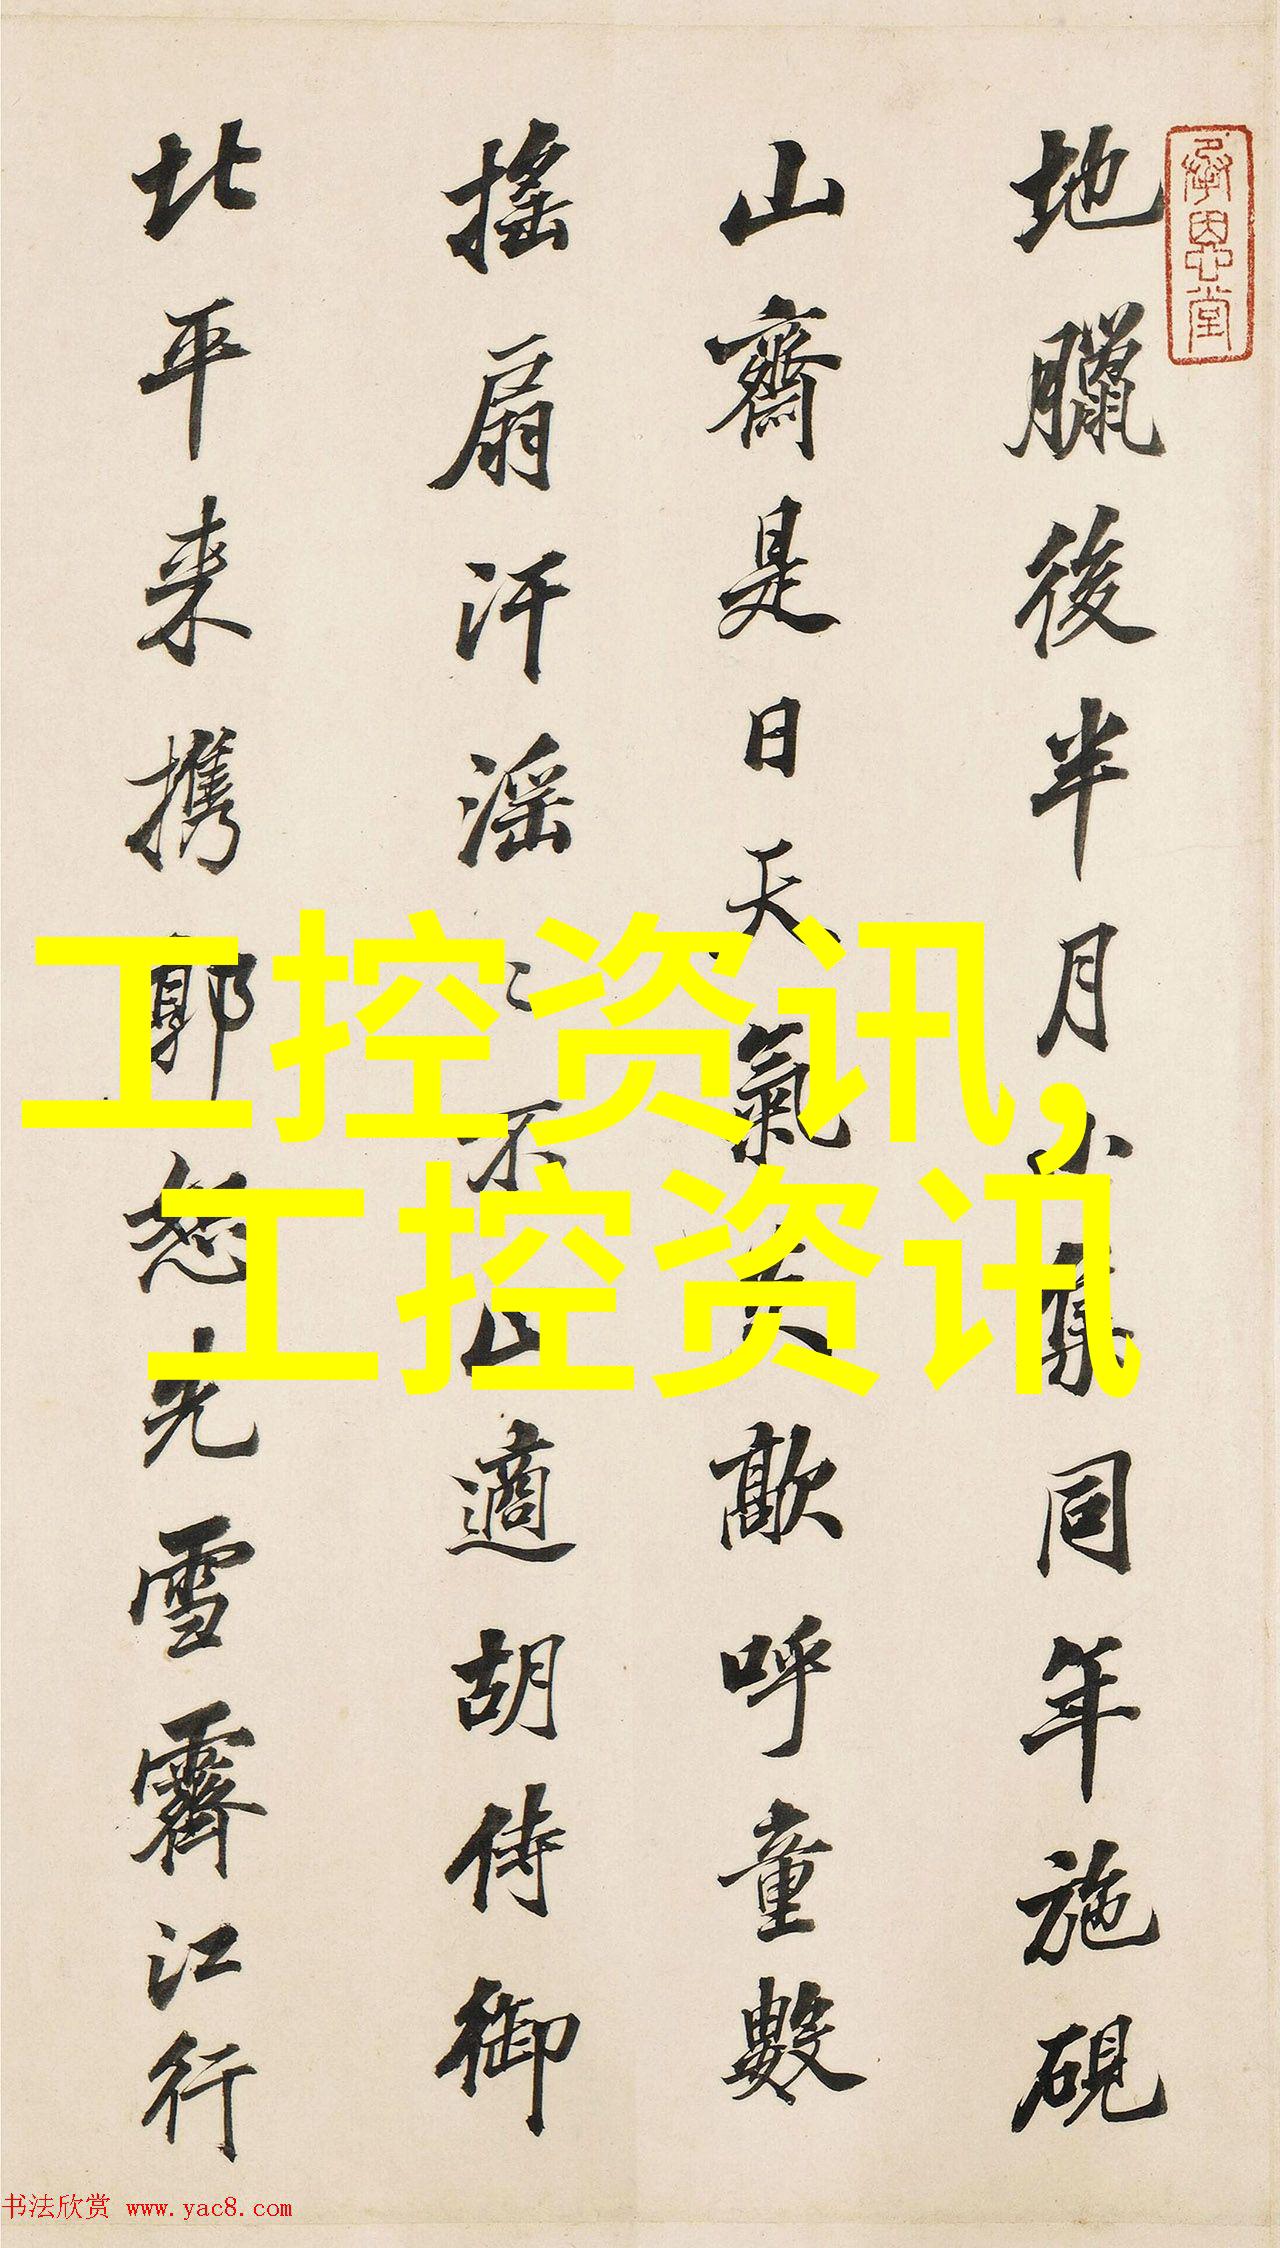 承恩堂
地臘後半月小集同年施硯
山齋是日天氣炎歊呼童數
搖扇汗滛〻不止適胡侍御
北平来攜郭恕先雪霽江行
工控资讯,
工控资讯
书法欣赏 www.yac8.com